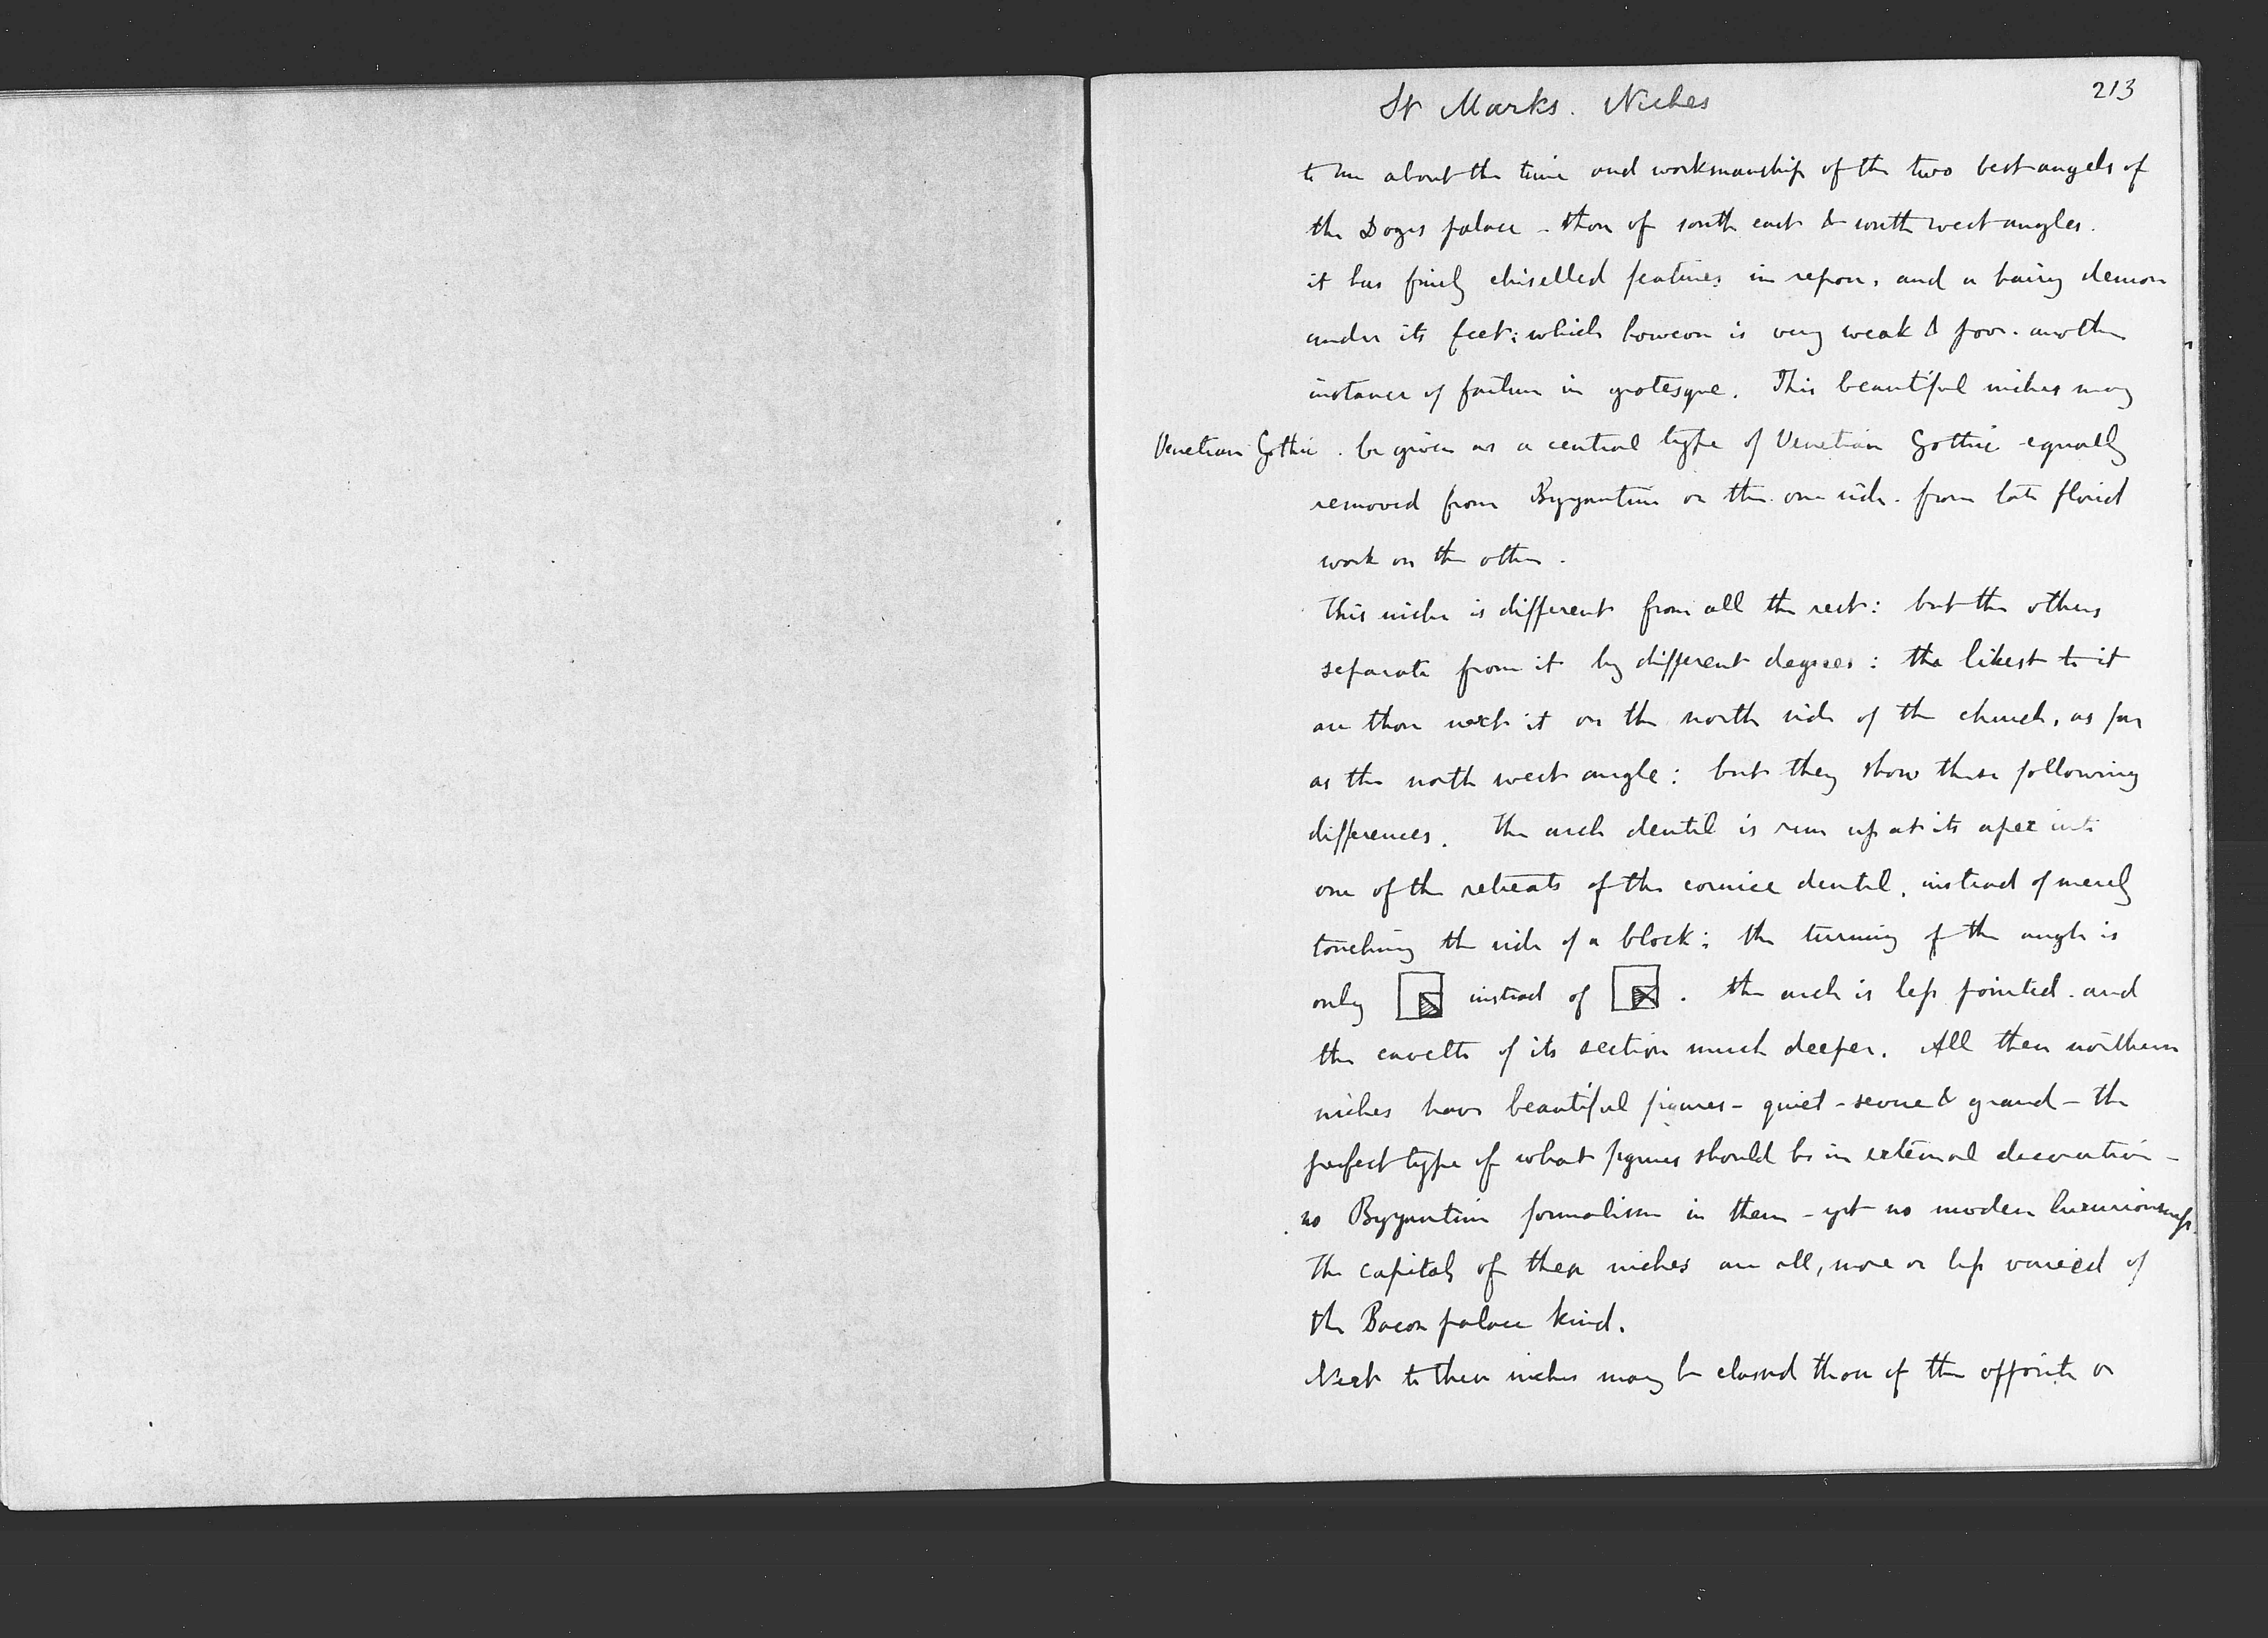 St Marks. Niches
213
to me about the time and workmanship of the two best angels of
the Doges palace - those of south east & south west angles.
it has finely chiselled features in repose, and a hairy demon
under its feet: which however is very weak & poor. another
instance of failure in grotesque. This beautiful niches may
Venetian Gothic . be given as a central type of Venetian Gothic equally
removed from Byzantine on the one side. from late florid
work on the other.
This niche is different from all the rest: but the others
separate from it by different degrees: the likest to it
are those next it on the north side of the church, as far
as the north west angle: but they show these following
differences. The arch dentil is run up at its apex into
one of the retreats of the cornice dentil, instead of merely
touching the side of a block: the turning of the angle is
only instead of . the arch is less pointed. and
the cavetto of its section much deeper. All these northern
niches have beautiful figures - quiet - severe & grand - the
perfect type of what figures should be in external decoration -
no Byzantine formalism in them - yet no modern luxuriousness.
The capitals of these niches are all, more or less varied of
the Bacon palace kind.
Next to these niches may be classed those of the opposite or